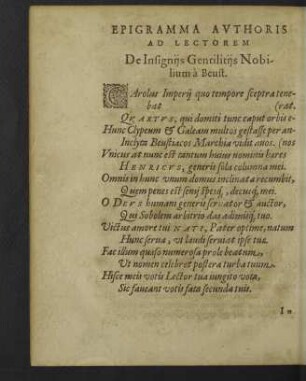 EPIGRAMMA AVTHORIS
AD LECTOREM
De Insignijs Gentilitijs Nobi-
lium à Beust.
CArolus Imperij quo tempore sceptra tene-
bat (rat,
QVARTVS, qui domiti tunc caput orbis e-
Hunc Clypeum & Galeam multos gestasse per an-
Inclyta Beustiacos Marchia vidit auos. (nos
Vnicus at nunc est tantùm huius nominis hæres
HENRICVS, generis sola columna mei.
Omnis in hunc vnum domus inclinata recumbit,
Quem penes est senij spesq́, decusq́, mei.
O DEVS humani generis seruator & auctor,
Qui Sobolem arbitrio das adimisq́, tuo.
Victus amore tui NATI, Pater optime, natum
Hunc serua, vt laudi seruiat ipse tuæ.
Fac illum quoq́ numerosa prole beatum,
Vt nomen celebret postera turba tuum.
Hisce meis votis Lector tua iungito vota,
Sic faueant votis fata secunda tuis.